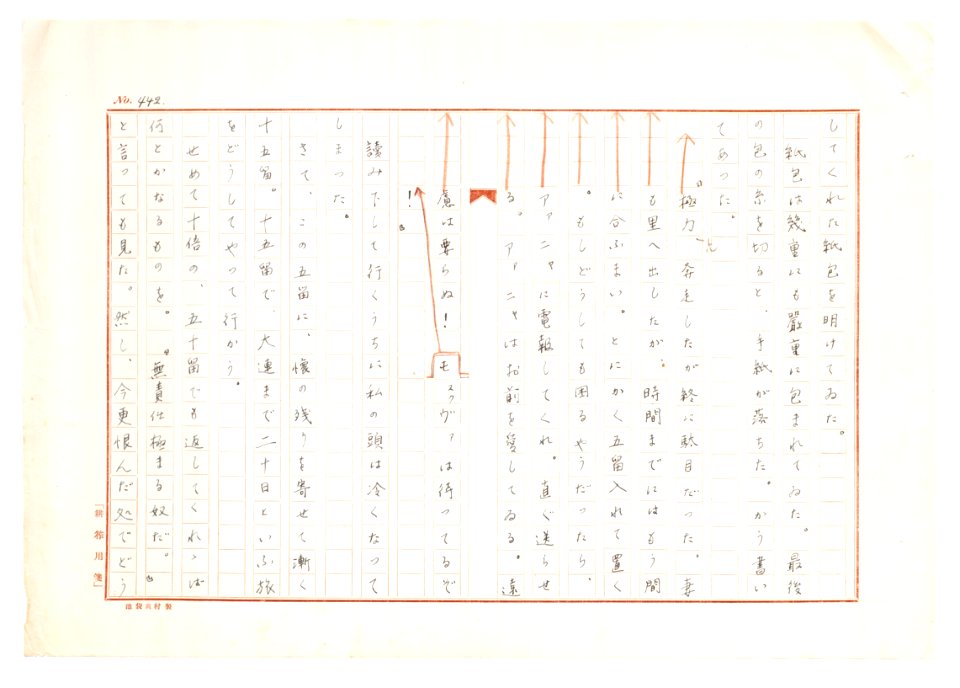 No. 442
してくれた紙包を明けてゐた。
紙包は幾重にも嚴重に包まれてゐた。最後
の包の糸を切ると、手紙が落ちた。かう書い
てあった。
極力奔走したが終に駄目だった。妻
も里へ出したが、時間までにはもう間
に合ふまい。とにかく五留入れて置く
。もしどうしても困るやうだったら、
アァニャに電報してくれ。直ぐ送らせ
る。アァニャはお前を愛してゐる。遠
慮は要らぬ!モスクヴァは待ってるぞ
!
讀み下して行くうちに私の頭は冷くなって
しまった。
さて、この五留に、懷の残りを寄せて漸く
十五留。十五留で、大連まで二十日といふ旅
をどうしてやって行かう。
せめて十倍の、五十留でも返してくれゝば
何とかなるものを。無責任極まる奴だ。
と言っても見た。然し、今更恨んだ処でどう
「耕作用箋」